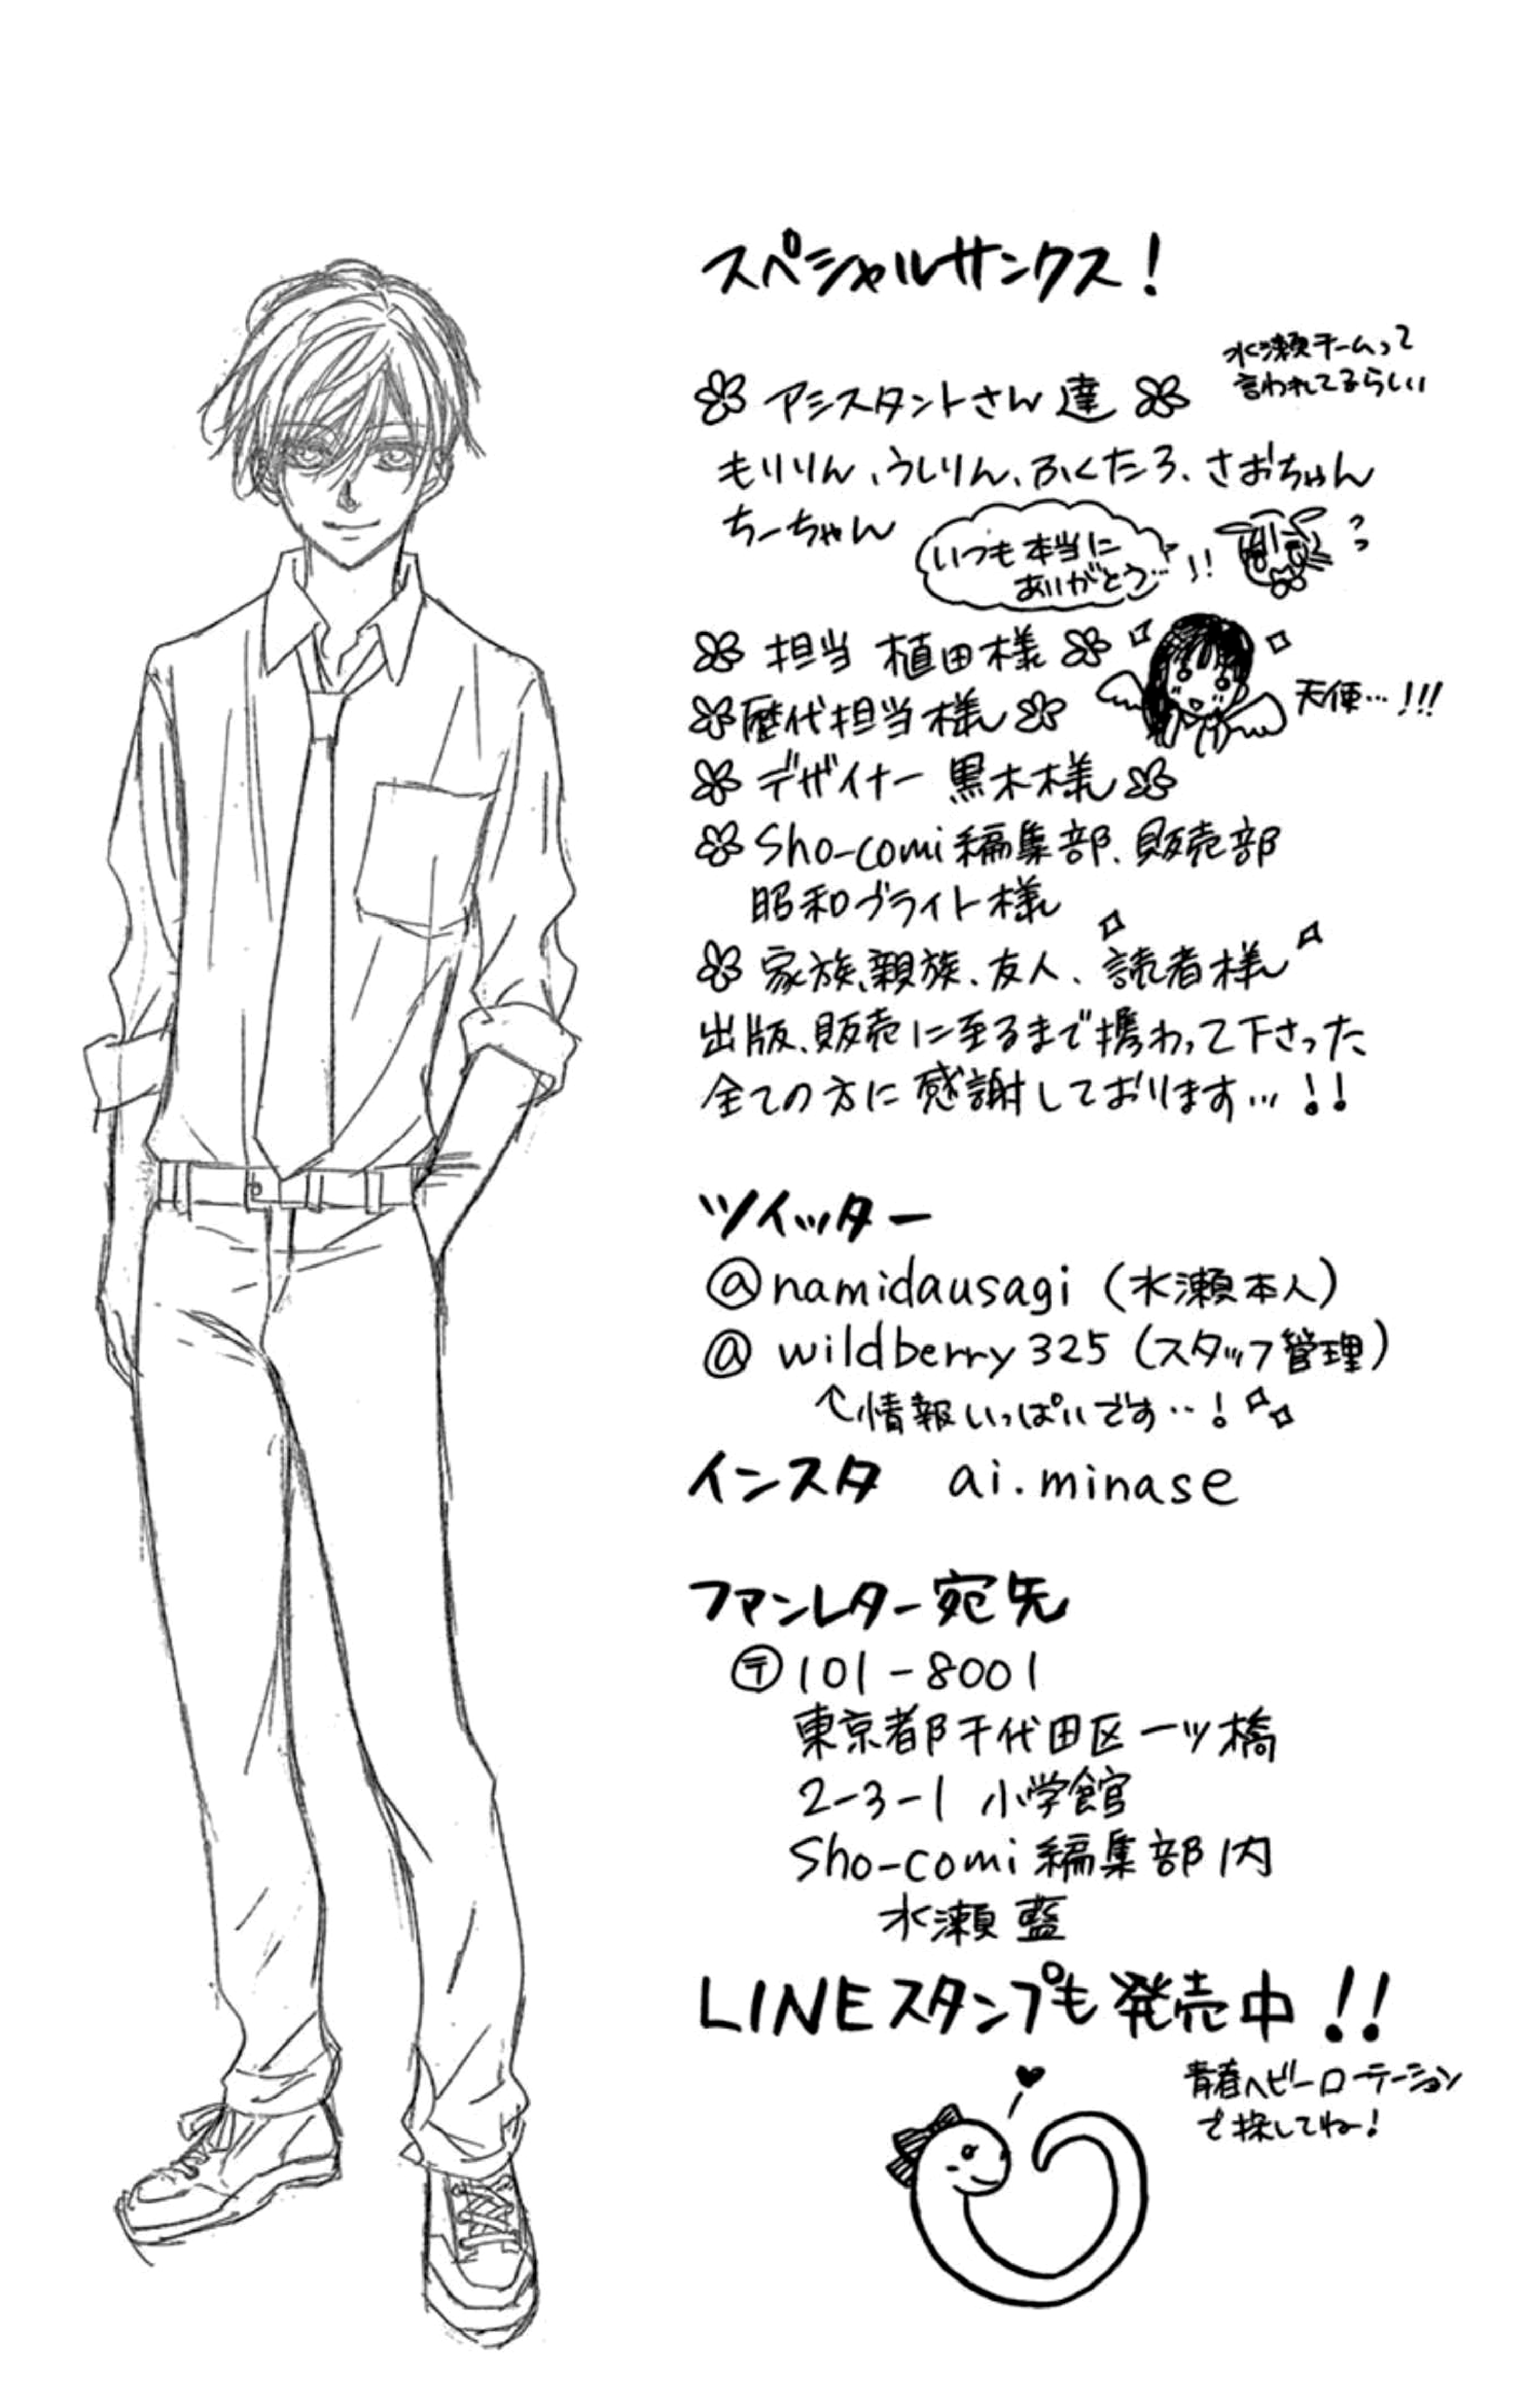 スペシャルサンクス！
水瀬チームって
言われてるらしい
アシスタントさん達
もりりん、うしりん、ふくたろ、さおちゃん
ちーちゃん
いつも本当に
ありがとう…!!
担当 植田様
天使…!!!
歴代担当様
デザイナー 黒木様
Sho-comi編集部、販売部
昭和ブライト様
家族、親族、友人、読者様
出版、販売に至るまで携わって下さった
全ての方に感謝しております…!!
ツイッター
@namidausagi（水瀬本人）
@wildberry325（スタッフ管理）
↑情報いっぱいです…！
インスタ ai.minase
ファンレター宛先
〒101-8001
東京都千代田区一ツ橋
2-3-1 小学館
Sho-comi編集部内
水瀬 藍
LINEスタンプも発売中!!
青春ヘビーローテーション
で探してね！